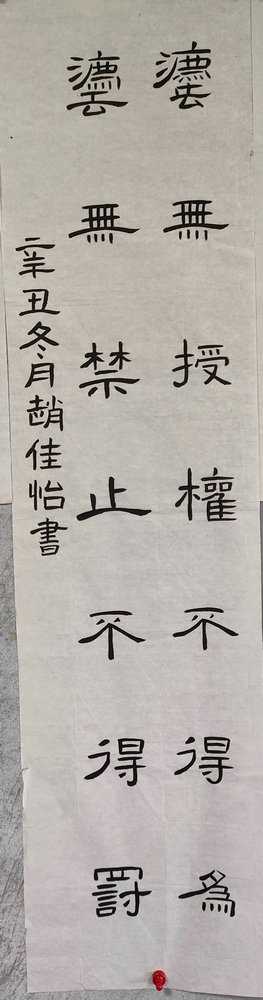 灋無授權不得為
灋無禁止不得罰
辛丑冬月趙佳怡書